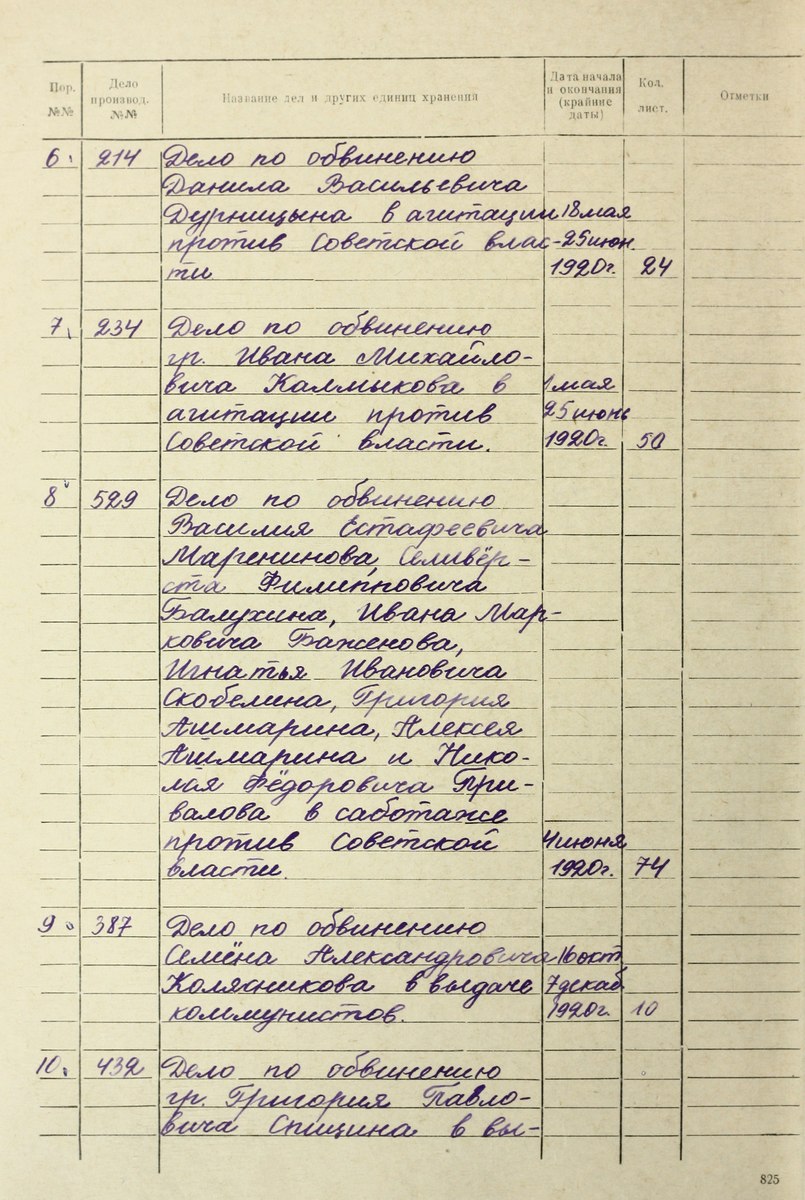 Пор. №№ Дело производ. №№ Название дел и других единиц хранения Дата начала и окончания (крайние даты) Кол. лист. Отметки
6. 214 Дело по обвинению
Данила Васильевича
Дурницына в агитации 18 мая
против Советской влас- -25 июн.
ти 1920г. 24
7. 234 Дело по обвинению
гр. Ивана Михайло-
вича Калмыкова в 1 мая
агитации против 25 июнь
Советской власти. 1920г. 50
8 529 Дело по обвинению
Василия Естафеевича
Маренинова, Селивёр-
ста Филипповича
Балухина, Ивана Мар-
ковича Баженова,
Игнатья Ивановича
Скобелина, Григория
Ашмарина, Алексея
Ашмарина и Нико-
лая Фёдоровича При-
валова в саботаже
против Советской 4 июня
власти. 1920г. 74
9. 387 Дело по обвинению
Семёна Александровича 16 окт.
Колясникова в выдаче 7 декаб
коммунистов. 1920г. 10
10. 432 Дело по обвинению
гр. Григория Павло-
вича Спицина в вы-
825